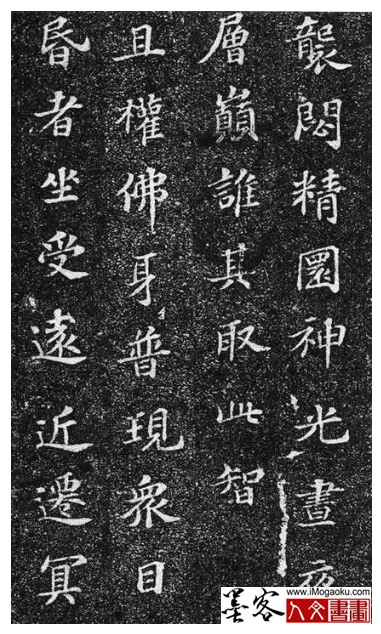 襲閟精圜神光晝夜
層巔誰其取此智
且權佛身普現眾目
昏者坐受遠近遷冥
墨客
www.iMogaoku.com
人文書畫